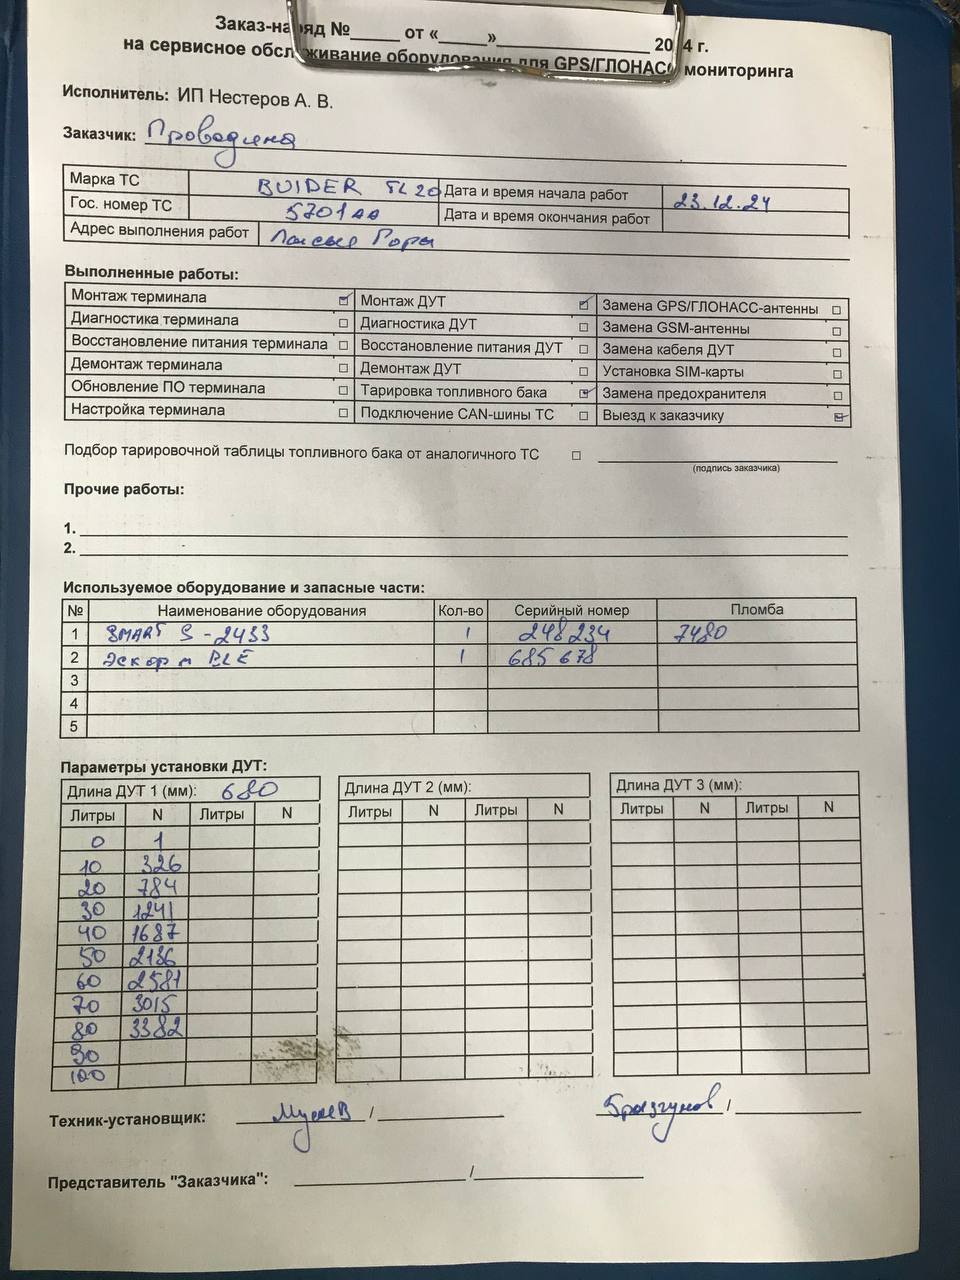 Заказ-наряд №_____ от «_____»________________ 20 4 г.
на сервисное обслуживание оборудования для GPS/ГЛОНАСС мониторинга
Исполнитель: ИП Нестеров А. В.
Заказчик:
Марка ТС TL 20 Дата и время начала работ 23.12.24
Гос. номер ТС 5701 АА Дата и время окончания работ
Адрес выполнения работ Лысые Горы
Выполненные работы:
Монтаж терминала ☑ Монтаж ДУТ ☑ Замена GPS/ГЛОНАСС-антенны ☐
Диагностика терминала ☐ Диагностика ДУТ ☐ Замена GSM-антенны ☐
Восстановление питания терминала ☐ Восстановление питания ДУТ ☐ Замена кабеля ДУТ ☐
Демонтаж терминала ☐ Демонтаж ДУТ ☐ Установка SIM-карты ☐
Обновление ПО терминала ☐ Тарировка топливного бака ☑ Замена предохранителя ☐
Настройка терминала ☐ Подключение CAN-шины ТС ☐ Выезд к заказчику ☑
Подбор тарировочной таблицы топливного бака от аналогичного ТС ☐
(подпись заказчика)
Прочие работы:
1.
2.
Используемое оборудование и запасные части:
№ Наименование оборудования Кол-во Серийный номер Пломба
1 SMART S-2433 1 248234 7480
2 Эскорт BLE 1 685678
3
4
5
Параметры установки ДУТ:
Длина ДУТ 1 (мм): 680 Длина ДУТ 2 (мм): Длина ДУТ 3 (мм):
Литры N Литры N Литры N Литры N Литры N Литры N
0 1
10 326
20 784
30 1241
40 1687
50 2136
60 2581
70 3015
80 3382
90
100
Техник-установщик: / Брызгунов /
Представитель "Заказчика": /